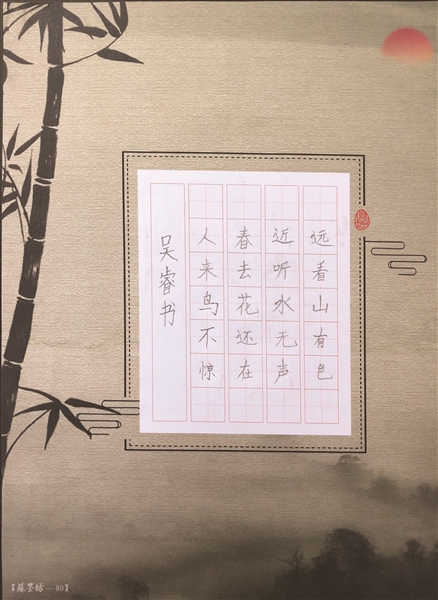 远看山有色
近听水无声
春去花还在
人来鸟不惊
吴睿书
【蘇墨坊—80】